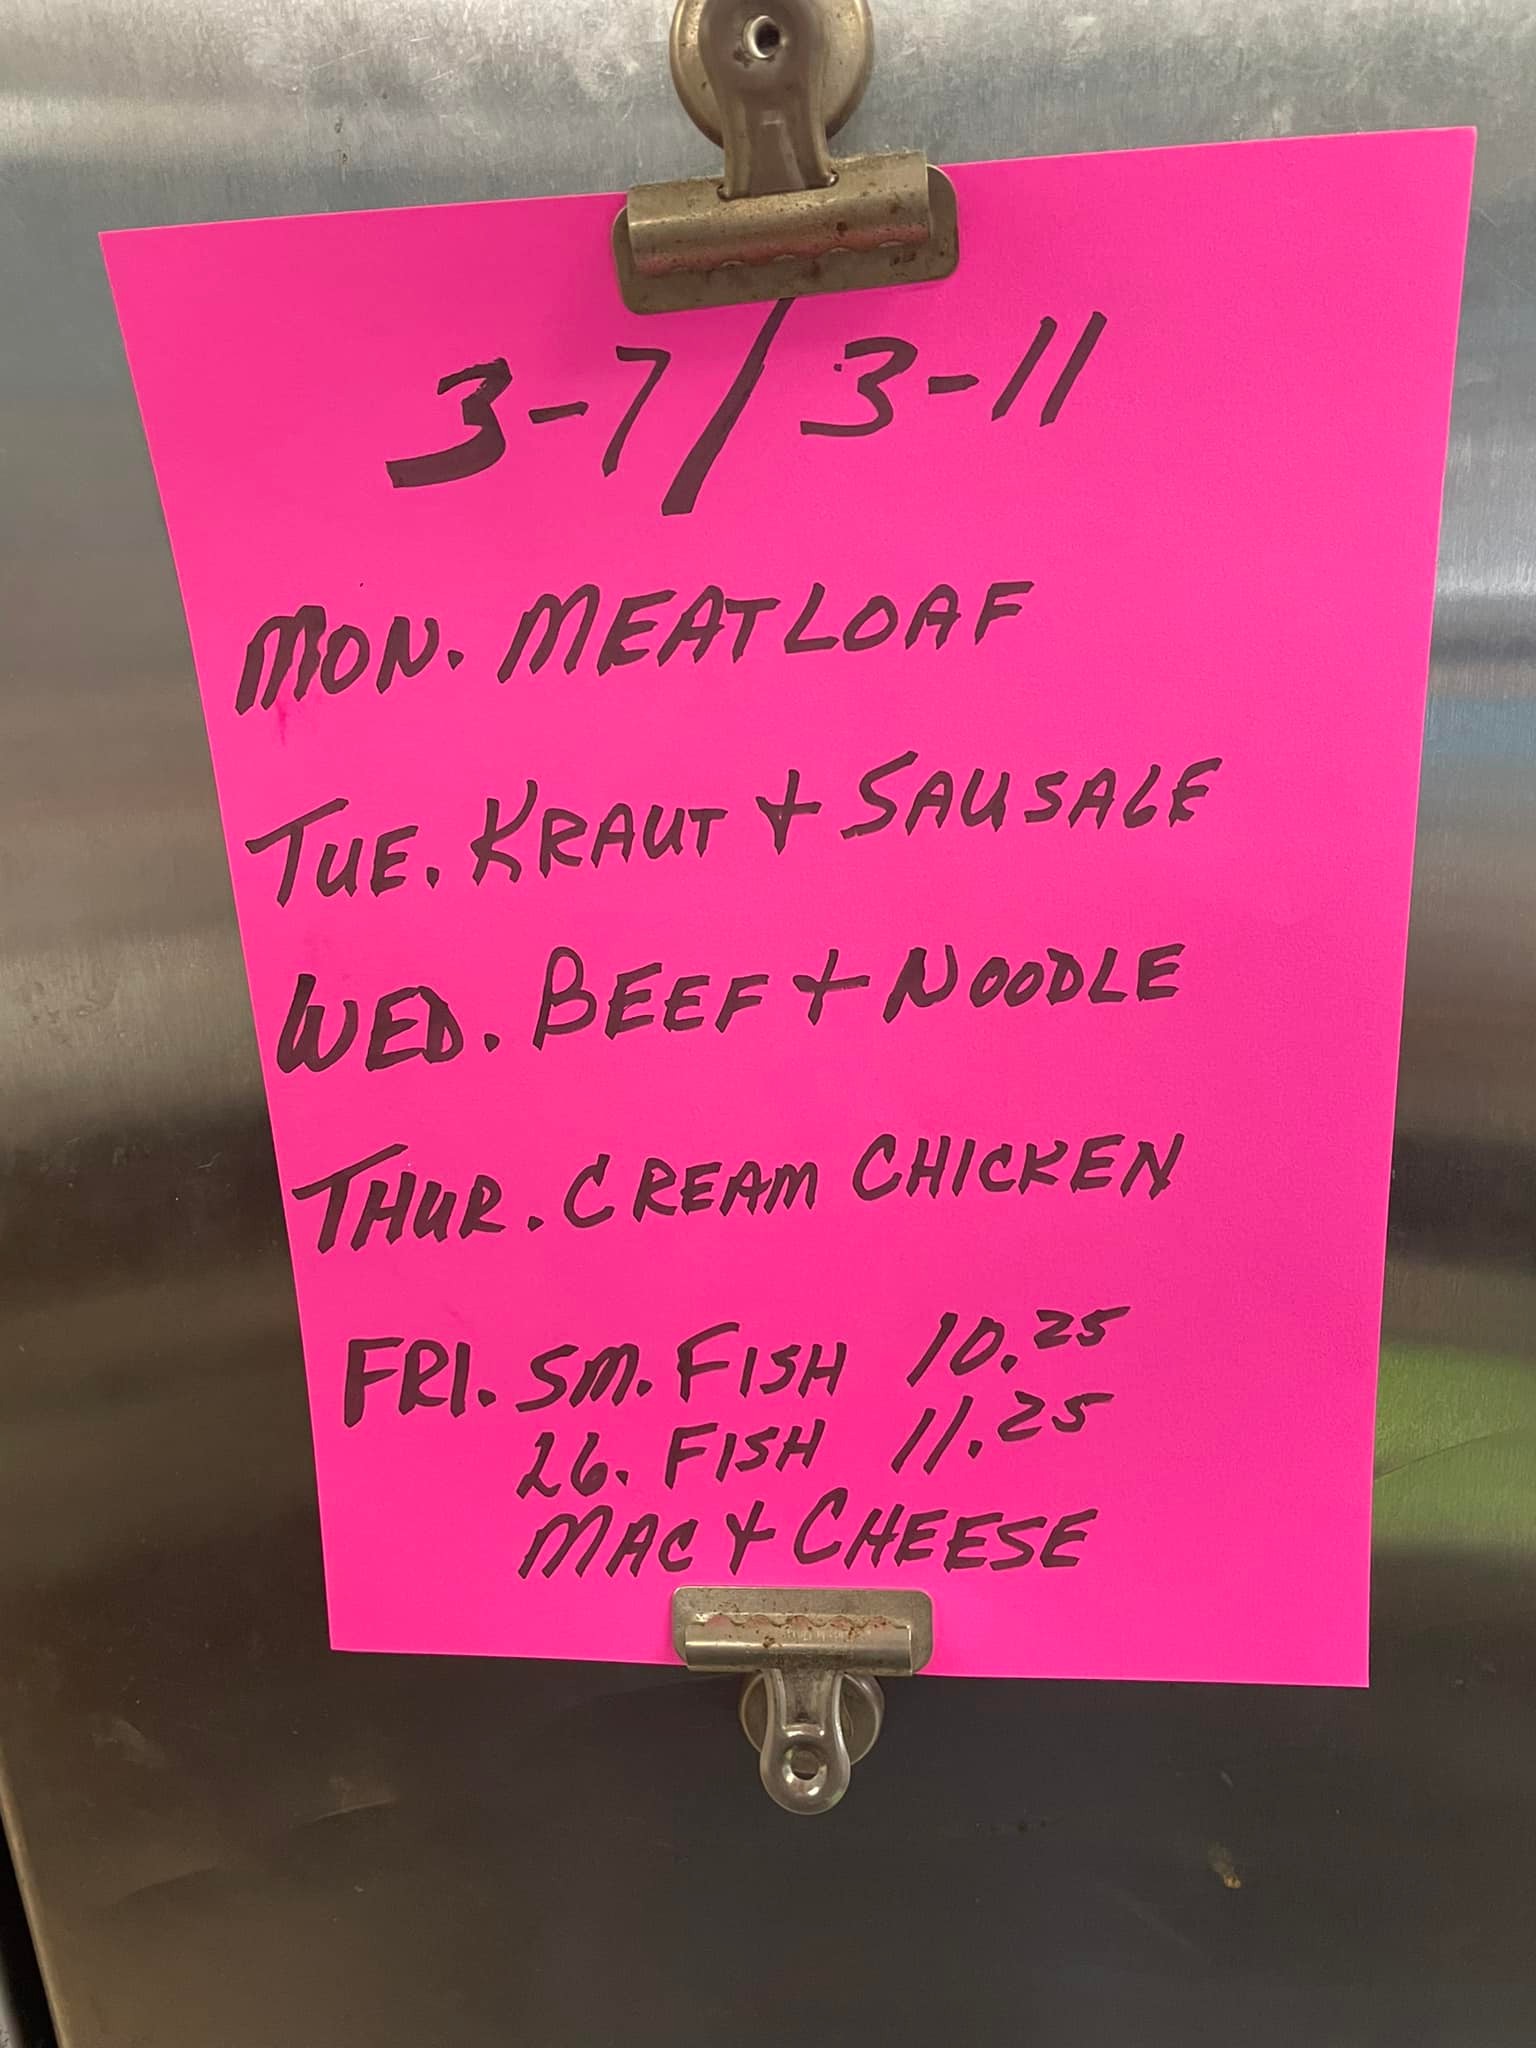 3-7/3-11
MON. MEATLOAF
TUE. KRAUT + SAUSAGE
WED. BEEF + NOODLE
THUR. CREAM CHICKEN
FRI. SM. FISH 10.25
LG. FISH 11.25
MAC + CHEESE